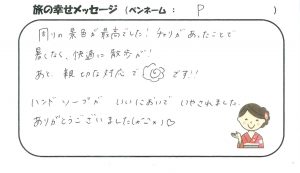 旅の幸せメッセージ (ペンネーム : P )
周りの景色が最高でした! チャリがあったことで
暑くなく、快適に散歩が!
あと、親切な対応で です!!
ハンドソープが いいにおいで いやされました
ありがとうございました(*^^*)♡